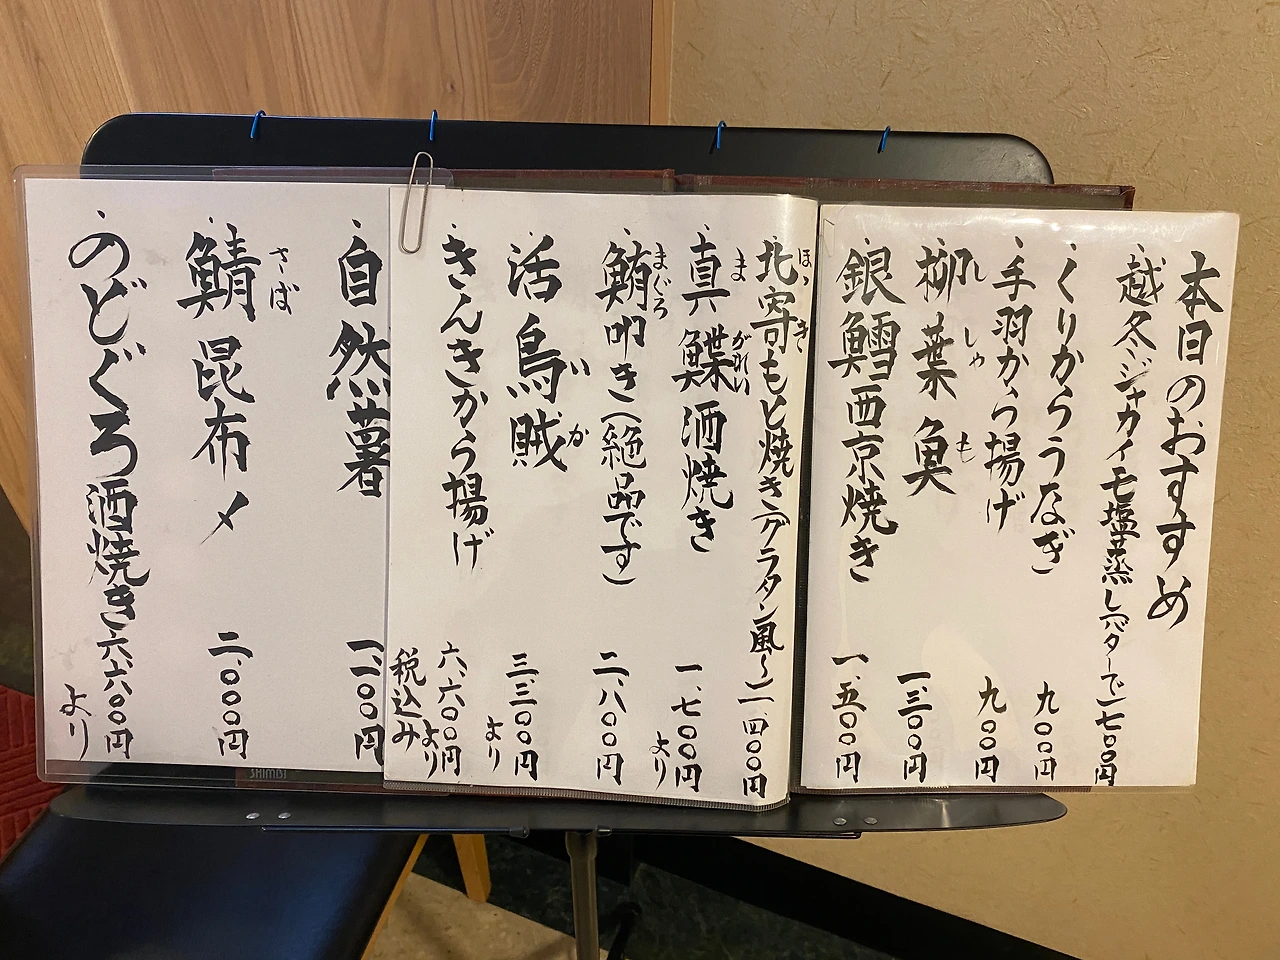 本日のおすすめ
・越冬ジャガイモ塩蒸し(バターで)七〇〇円
・くりからうなぎ 九〇〇円
・手羽から揚げ 九〇〇円
・柳葉魚 ししゃも 一、三〇〇円
・銀鱈西京焼き 一、五〇〇円
・北寄もと焼き(グラタン風〜) ほっき 二、四〇〇円
・真鰈酒焼き まがれい 一、七〇〇円より
・鮪叩き(絶品です) まぐろ 二、八〇〇円
・活烏賊 いか 三、三〇〇円より
・きんきから揚げ 六、六〇〇円より
税込み
・自然薯 一、一〇〇円
・鯖昆布〆 さば 二、〇〇〇円
・のどぐろ酒焼き 六、六〇〇円より
SHIMBI